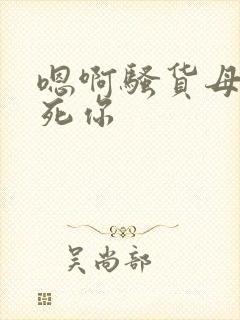 嗯啊骚货母
死你
吴尚部